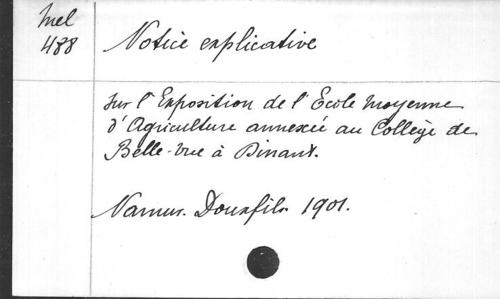 Mel
488
Notice explicative
sur l'Exposition de l'Ecole moyenne
d'Agriculture annexée au Collège de
Belle-Vue à Dinant.
Namur. Doux fils. 1901.